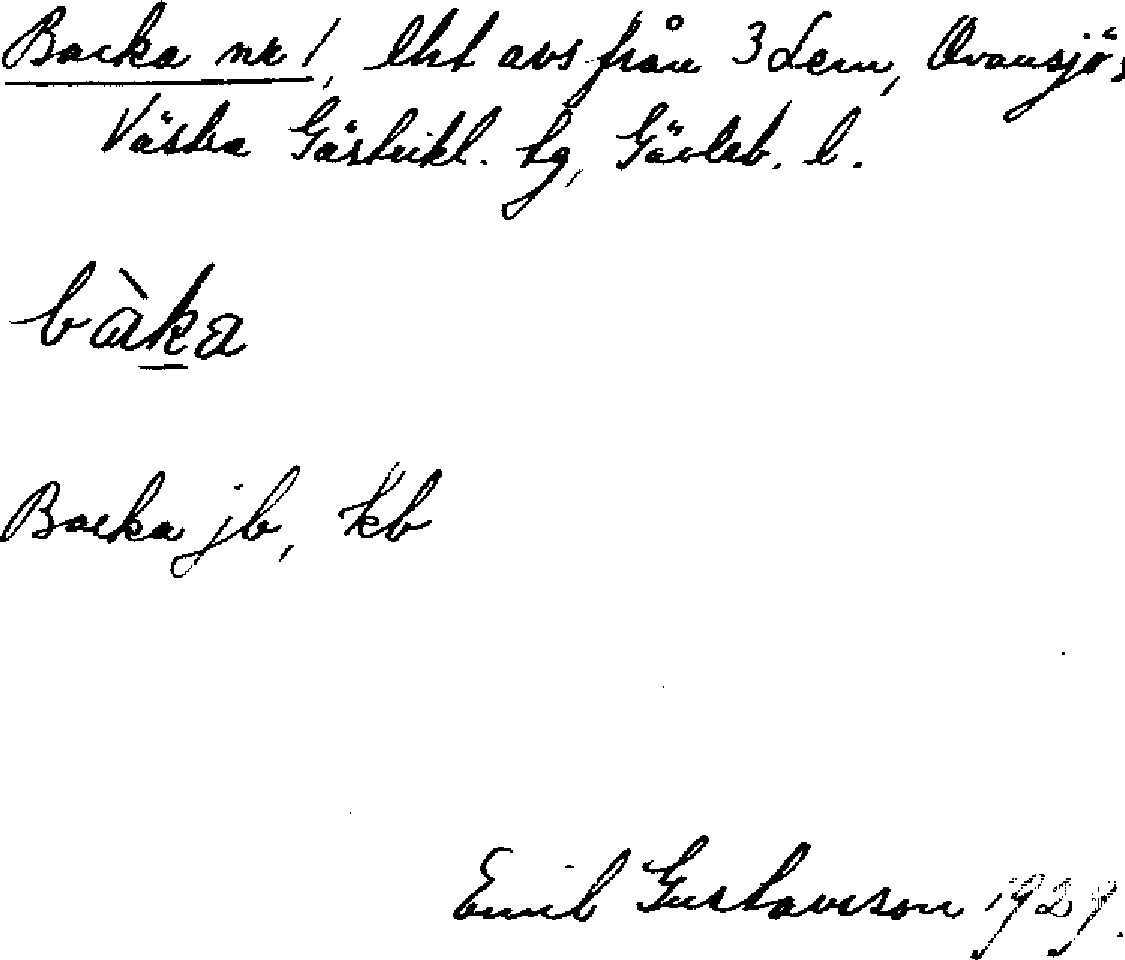 Backa nr 1, lht avs från 3 Lem, Ovansjö s
Västra Gästrikl. tg, Gävleb. l.
bàka
Backa jb, kb
Emil Gustavsson 1929.